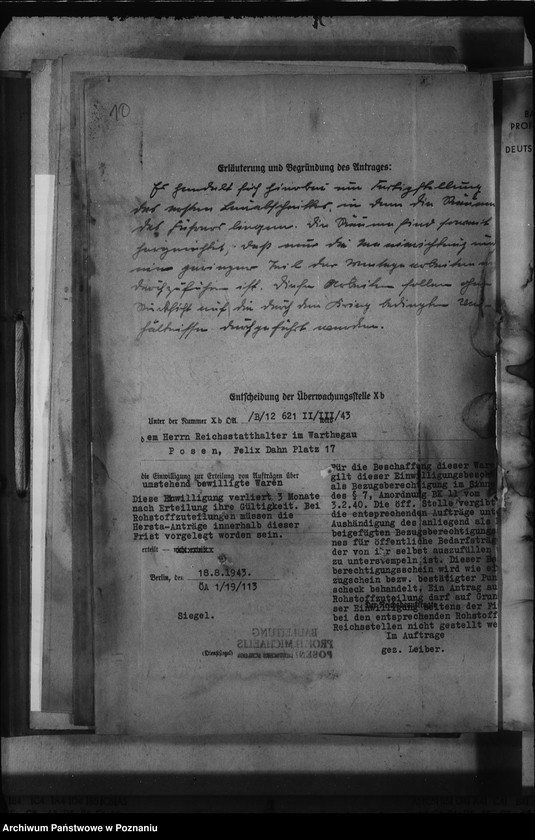 10
Erläuterung und Begründung des Antrages:
Es handelt sich hierbei um Fertigstellung
des ersten Bauabschnittes, in dem die Räume
des Führers liegen. Die Räume sind soweit
hergerichtet, daß nur die Inneneinrichtung und
ein geringer Teil der Montagearbeiten
durchzuführen ist. Diese Arbeiten sollen ohne
Rücksicht auf die durch den Krieg bedingten
hältnisse durchgeführt werden.
Entscheidung der Überwachungsstelle Xb
Unter der Nummer Xb ÖA. /B/12 621 II/III/43
em Herrn Reichsstatthalter im Warthegau
Posen, Felix Dahn Platz 17
die Einwilligung zur Erteilung von Aufträgen über
umstehend bewilligte Waren
Diese Einwilligung verliert 3 Monate
nach Erteilung ihre Gültigkeit. Bei
Rohstoffzuteilungen müssen die
Hersta-Anträge innerhalb dieser
Frist vorgelegt worden sein.
erteilt —
Berlin, den 18.8.1943.
ÖA 1/19/113
Siegel.
(Dienstsiegel)
BAULEITUNG
PROF. D. MICHAELIS
POSEN
Für die Beschaffung dieser War
gilt dieser Einwilligungsbesche
als Bezugsberechtigung im Sinne
des § 7, Anordnung BK 11 vom
3.2.40. Die öff. Stelle vergibt
die entsprechenden Aufträge unt
Aushändigung des anliegend als
beigefügten Bezugsberechtigung
nes für öffentliche Bedarfsträg
der von ihr selbst auszufüllen
zu unterstempeln ist. Dieser Be
berechtigungsschein wird wie e
zugschein bezw. bestätigter Pun
scheck behandelt. Ein Antrag au
Rohstoffzuteilung darf auf Grun
ser Einwilligung seitens der Fi
bei den entsprechenden Rohstoff
Reichsstellen nicht gestellt we
Im Auftrage
gez. Leiber.
BA
PROF
DEUTS
Archiwum Państwowe w Poznaniu